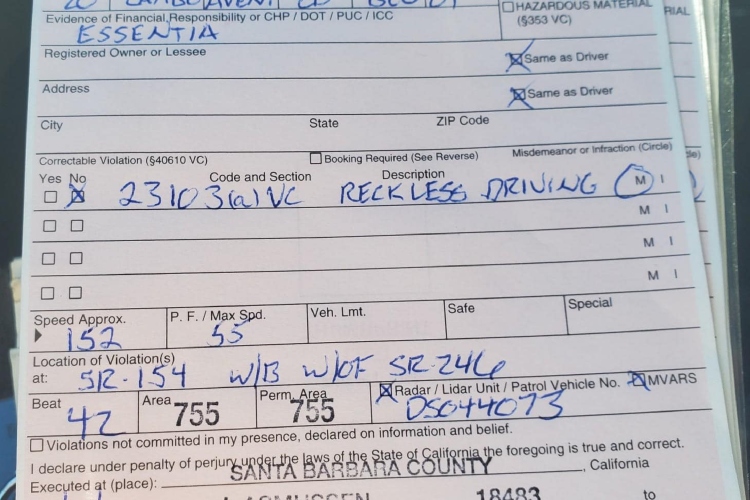 HAZARDOUS MATERIAL
Evidence of Financial Responsibility or CHP / DOT / PUC / ICC
(§353 VC)
ESSENTIA
Registered Owner or Lessee
Same as Driver
Address
Same as Driver
City State ZIP Code
Correctable Violation (§40610 VC) Booking Required (See Reverse) Misdemeanor or Infraction (Circle)
Yes No Code and Section Description
23103(a) VC RECKLESS DRIVING M I
M I
M I
M I
Speed Approx. P. F. / Max Spd. Veh. Lmt. Safe Special
152 55
Location of Violation(s)
at: SR-154 W/B W/OF SR-246
Beat Area Perm. Area Radar / Lidar Unit / Patrol Vehicle No. MVARS
42 755 755 DS044073
Violations not committed in my presence, declared on information and belief.
I declare under penalty of perjury under the laws of the State of California the foregoing is true and correct.
Executed at (place): SANTA BARBARA COUNTY , California
18483 to